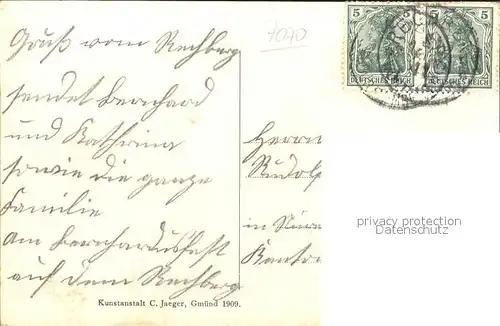 Gruß vom Rechberg
sendet Bernhard
und Kathrina
sowie die ganze
Familie
am Bernhardusfest
auf dem Rechberg
7070
5 5
DEUTSCHES REICH DEUTSCHES REICH
Herrn
Rudolf
in
Kunstanstalt C. Jaeger, Gmünd 1909.
privacy protection
Datenschutz